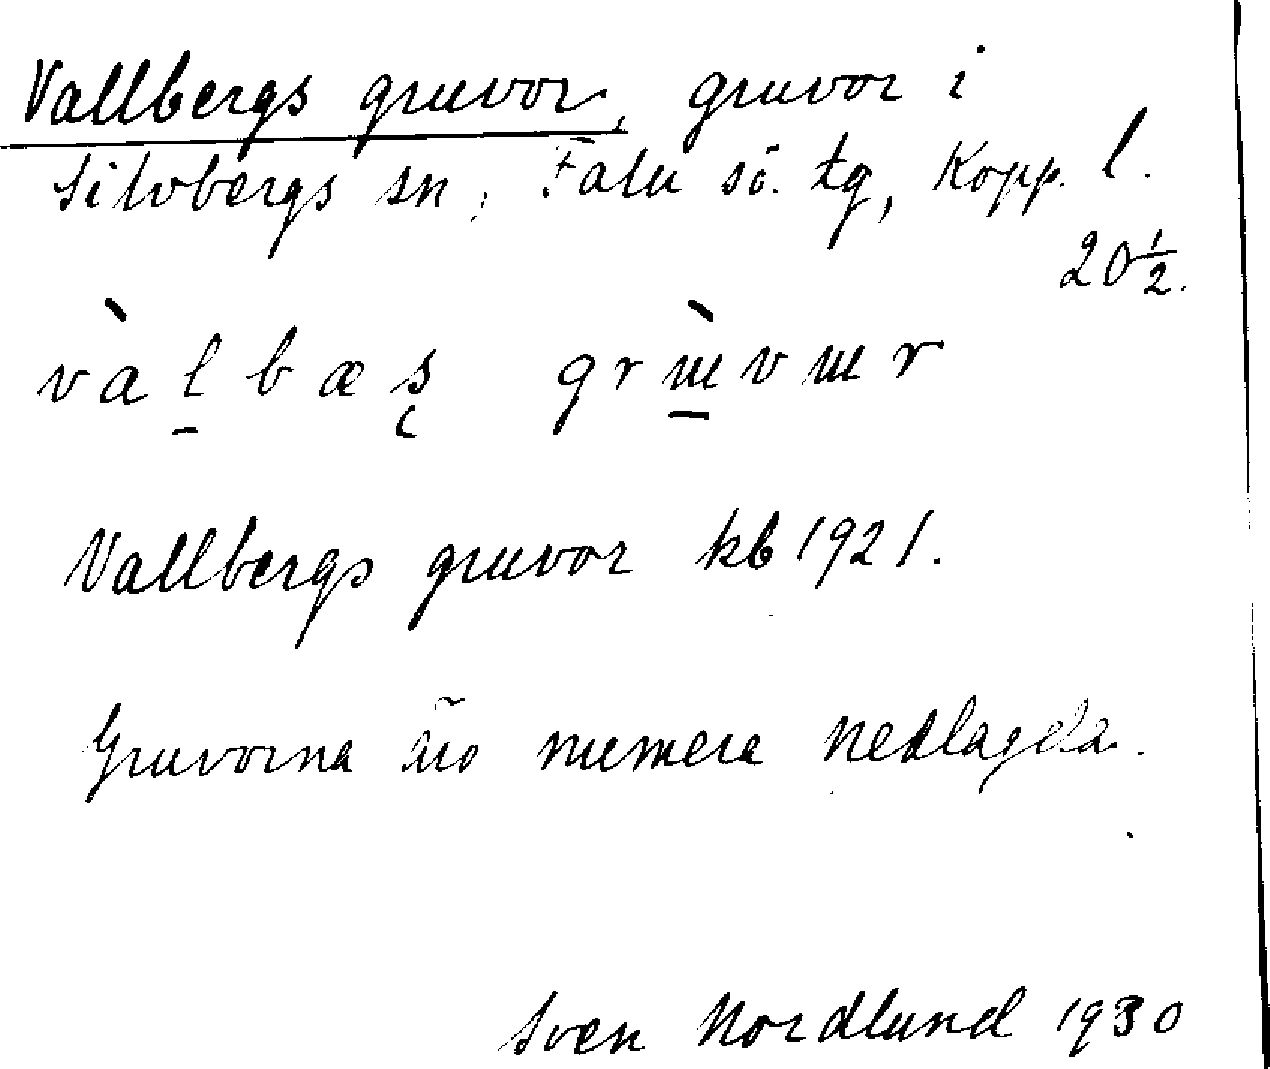 Vallbergs gruvor, gruvor i
Silvbergs sn, Falu sö. tg, Kopp. l.
20 1/2.
Vallbergs gruvor kb 1921.
Gruvorna äro numera nedlagda.
Sven Nordlund 1930